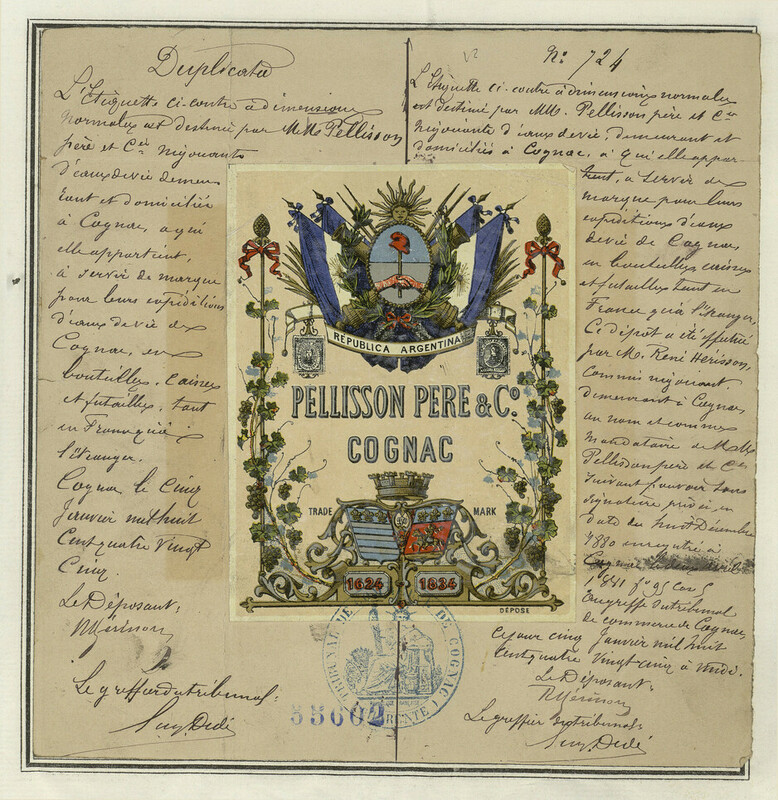 Duplicata
L'Etiquette ci-contre à dimensions
normales est destiné par MM. Pellisson
père et Cie négociants
d'eaux de vie demeu
rant et domiciliés
à Cognac, à qui
elle appartient,
à servir de marque
pour leurs expéditions
d'eaux de vie de
Cognac, en
bouteilles, caisses
et futailles, tant
en France qu'à
l'étranger.
Cognac le cinq
Janvier mil huit
cent quatre vingt
cinq.
Le Déposant,
Le greffier du tribunal.
No 724
L'Etiquette ci-contre à dimensions normales
est destiné par MM. Pellisson père et Cie
négociants d'eaux de vie, demeurant et
domiciliés à Cognac, à qui elle appar-
tient, à servir de
marque pour leurs
expéditions d'eaux
de vie de Cognac,
en bouteilles caisses
et futailles tant en
France qu'à l'étranger,
Ce dépôt a été effectué
par M. René Hérisson,
Commis négociant,
demeurant à Cognac,
au nom et comme
mandataire de MM.
Pellisson père et Cie
suivant pouvoir sous
signature privée en
date du huit Décembre
1880 enregistré à
Cognac
1881 fo 95 Cas 5
au greffe du tribunal
de commerce de Cognac,
ce jour cinq Janvier mil huit
cent quatre vingt cinq à
Le Déposant,
Le greffier du tribunal.
REPUBLICA ARGENTINA
PELLISSON PERE & Co.
COGNAC
TRADE MARK
1624 1834
DÉPOSÉ
TRIBUNAL DE DE COGNAC
55002